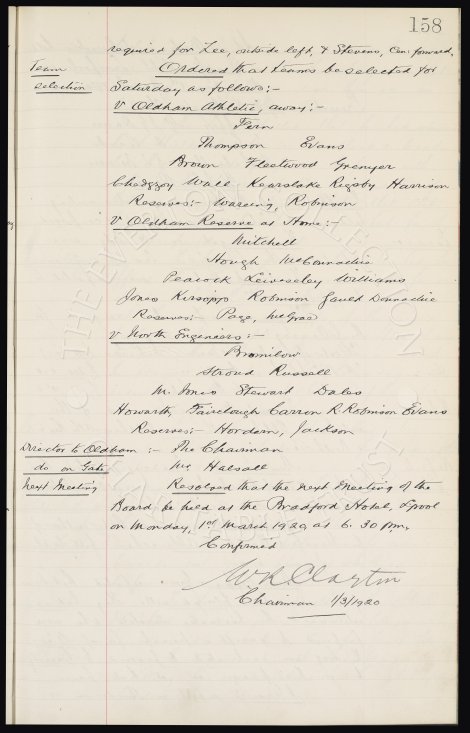 158
required for Lee, outside left, & Stevens, Cen: forward.
Team selection
Ordered that teams be selected for
Saturday as follows:-
v Oldham Athletic, away:-
Fern
Thompson Evans
Brown Fleetwood Grenyer
Chedgzoy Wall Kearslake Rigsby Harrison
Reserves:- Wareing, Robinson
v Oldham Reserve at Home:-
Mitchell
Hough McConnachie
Peacock Leivesley Williams
Jones Kirsopp Robinson Gauld Donnachie
Reserves:- Page, McGrae
v North Engineers:-
Bromilow
Stroud Russell
W. Jones Stewart Dales
Howarth, Fairclough Carron R. Robinson Evans
Reserves:- Hordern, Jackson
Director to Oldham :- The Chairman
do on Gate Mr. Halsall
Next Meeting
Resolved that the next meeting of the
Board be held at the Bradford Hotel, L'pool
on Monday, 1st March 1920, at 6.30 p.m.
Confirmed
W R Clayton
Chairman 1/3/1920